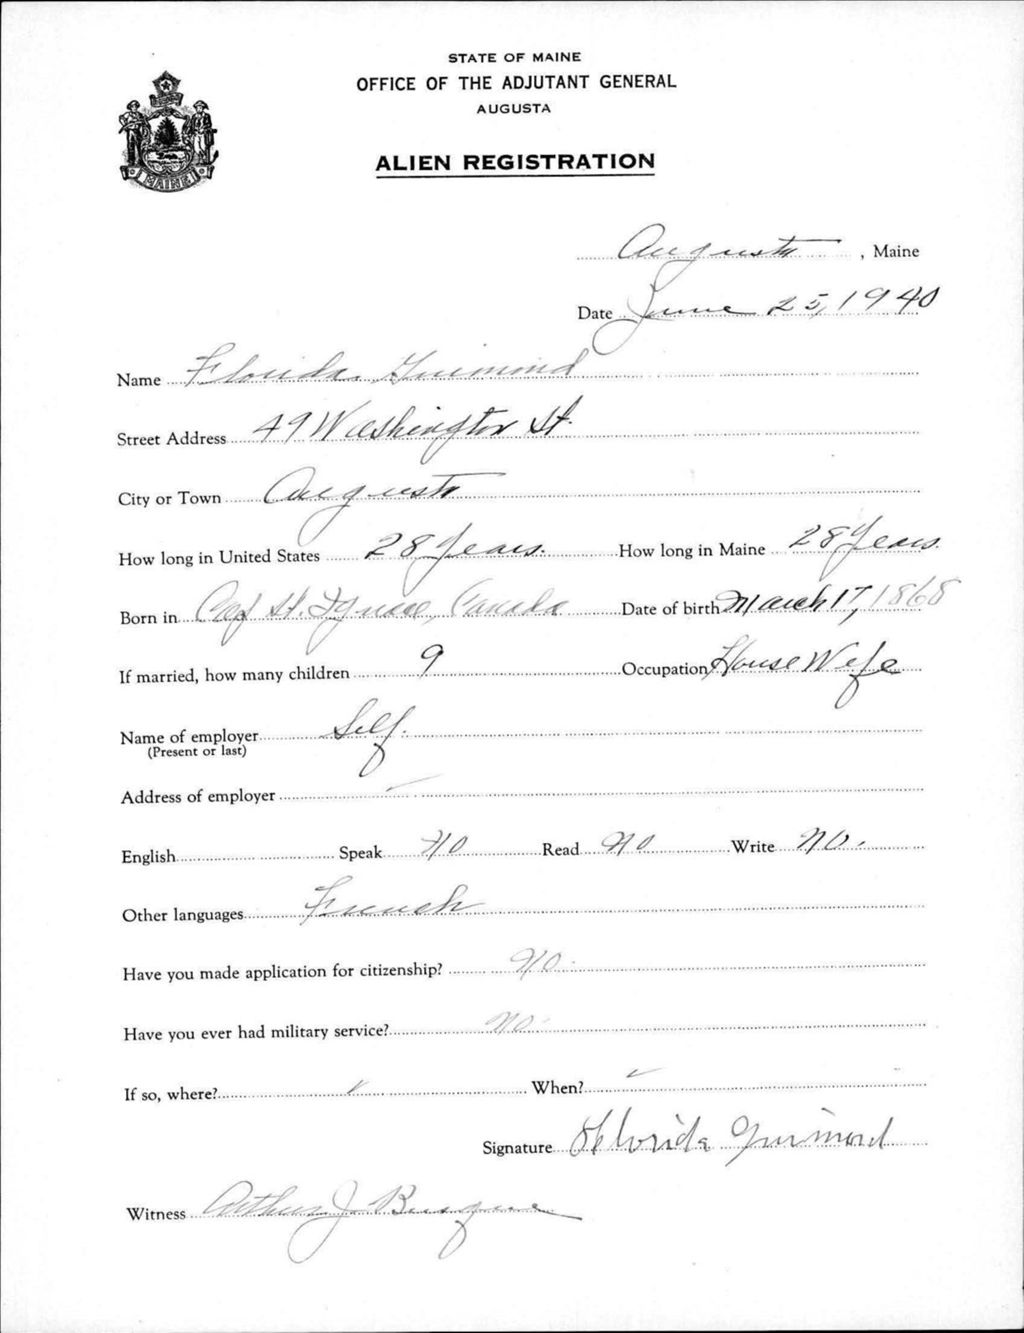 STATE OF MAINE
OFFICE OF THE ADJUTANT GENERAL
AUGUSTA
MAINE
ALIEN REGISTRATION
Augusta, Maine
Date June 25, 1940
Name Florida Guimond
Street Address 49 Washington St.
City or Town Augusta
How long in United States 28 Years. How long in Maine 28 Years.
Born in Cap St. Ignace, Canada Date of birth March 17, 1868
If married, how many children 9 Occupation House Wefe
Name of employer Self.
(Present or last)
Address of employer
English Speak No Read No Write No.
Other languages French
Have you made application for citizenship? No.
Have you ever had military service? No.
If so, where? When?
Signature Florida Guimond
Witness Arthur J Busque